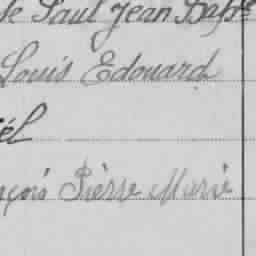 de Paul Jean Bapte
Louis Edouard
él
nçois Pierre Marie